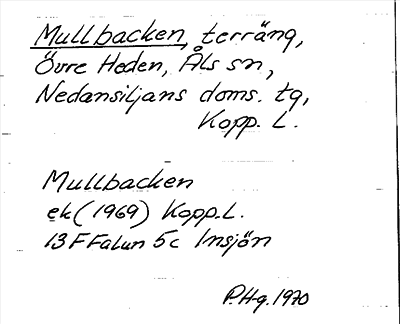 Mullbacken, terräng,
Övre Heden, Åls sn,
Nedansiljans doms. tg,
Kopp. L.
Mullbacken
ek (1969) Kopp. L.
13 F Falun 5c Insjön
P. Hg. 1970